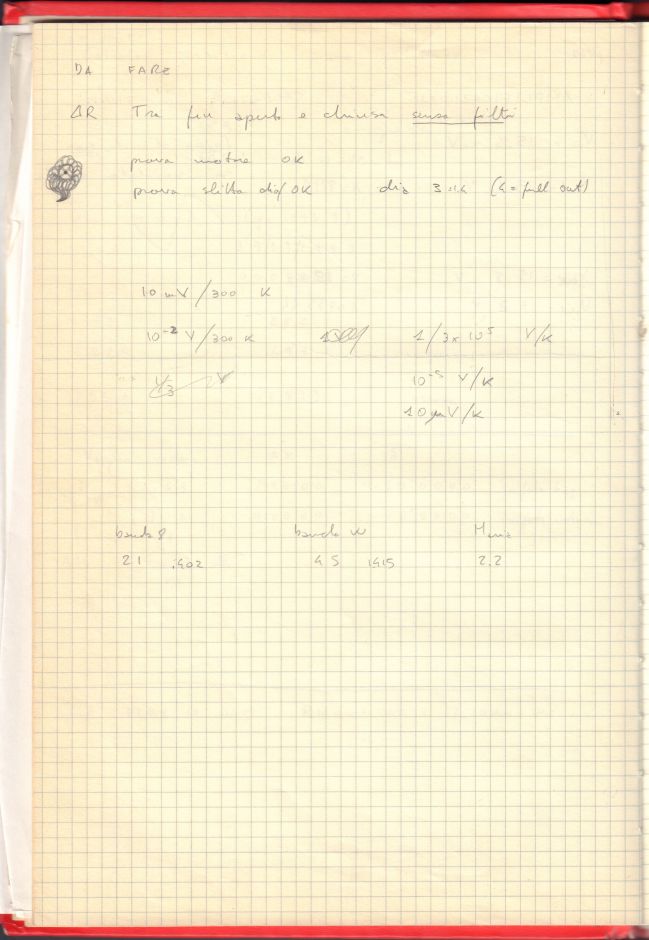 DA FARE
ΔR Tra fin aperto e chiusa senza filtri
prova motore OK
prova slitta dia/ OK dia 3 = (4 = full out)
10 mV/300 K
10⁻² V/300 K 1/3x10⁵ V/K
1/3 V 10⁻⁵ V/K
10 μV/K
banda 8 banda W
21 .402 45 1415 2.2